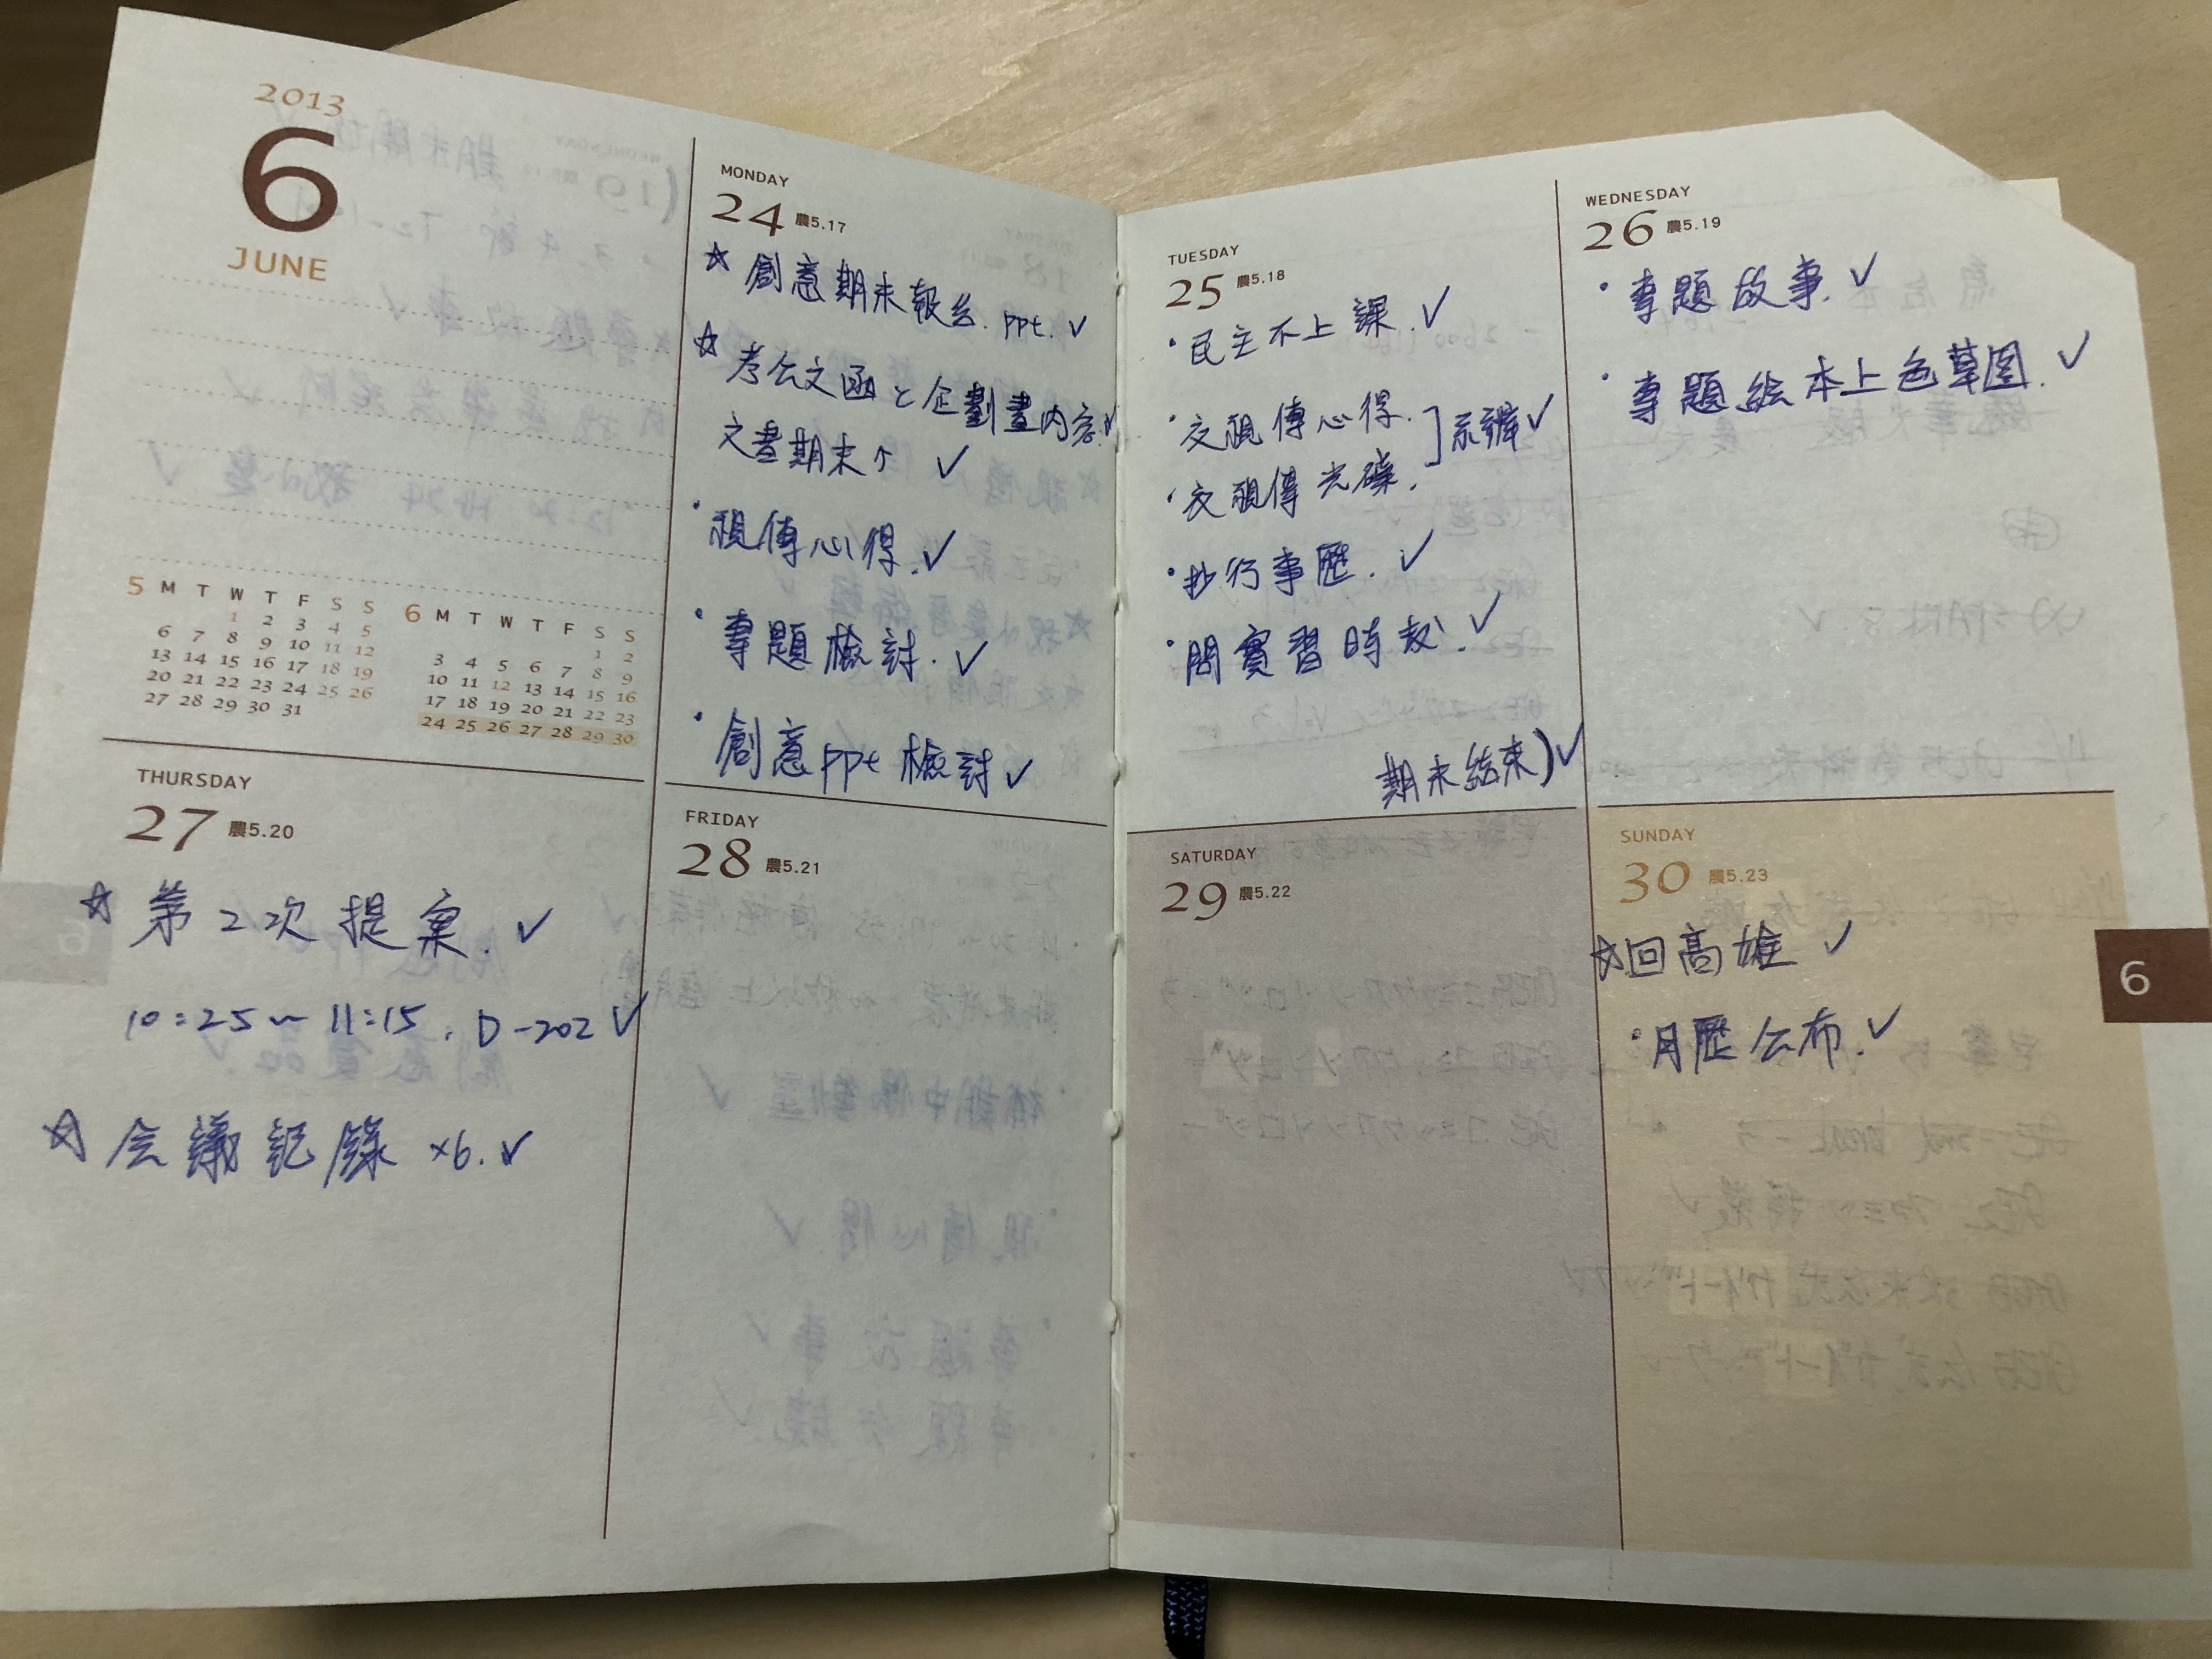 2013
6
JUNE
5 M T W T F S S
1 2 3 4 5
6 7 8 9 10 11 12
13 14 15 16 17 18 19
20 21 22 23 24 25 26
27 28 29 30 31
6 M T W T F S S
1 2
3 4 5 6 7 8 9
10 11 12 13 14 15 16
17 18 19 20 21 22 23
24 25 26 27 28 29 30
MONDAY
24 農5.17
☆ 創意期末報告. ppt. ✓
☆ 考公文函と企劃書內容. ✓
文書期末↑ ✓
・視傳心得. ✓
・專題檢討. ✓
・創意ppt檢討 ✓
TUESDAY
25 農5.18
・民主不上課. ✓
・交視傳心得. ]系辦 ✓
・交視傳光碟.
・抄行事歷. ✓
・問實習時数. ✓
期末結束) ✓
WEDNESDAY
26 農5.19
・專題故事. ✓
・專題絵本上色草图. ✓
THURSDAY
27 農5.20
☆ 第2次提案. ✓
10:25~11:15. D-202 ✓
☆ 会議記錄 ×6. ✓
FRIDAY
28 農5.21
SATURDAY
29 農5.22
SUNDAY
30 農5.23
☆回高雄 ✓
・月歷公布. ✓
6